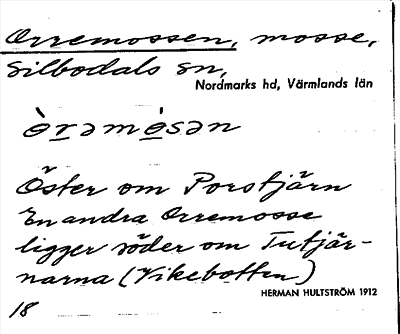 Orremossen, mosse,
Silbodals sn,
Nordmarks hd, Värmlands län
òrəmósən
Öster om Porstjärn
En andra Orremosse
ligger söder om Tutjär-
narna (Vikebotten)
HERMAN HULTSTRÖM 1912
18